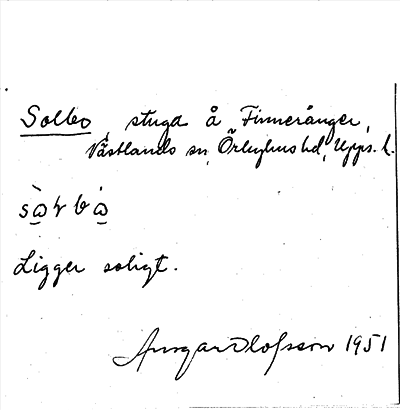 Solbo, stuga å Finneränger,
Västlands sn, Örbyhus hd, Upps. l.
sὼrbὼ
Ligger soligt.
Ansgar Olofsson 1951